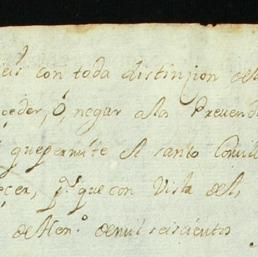 con toda distinsion
çeder, o, negar a la Prevend
que permite el santo Conçil
eçer, p.ª que con Vista del
de Hen.º de mil seiscientos